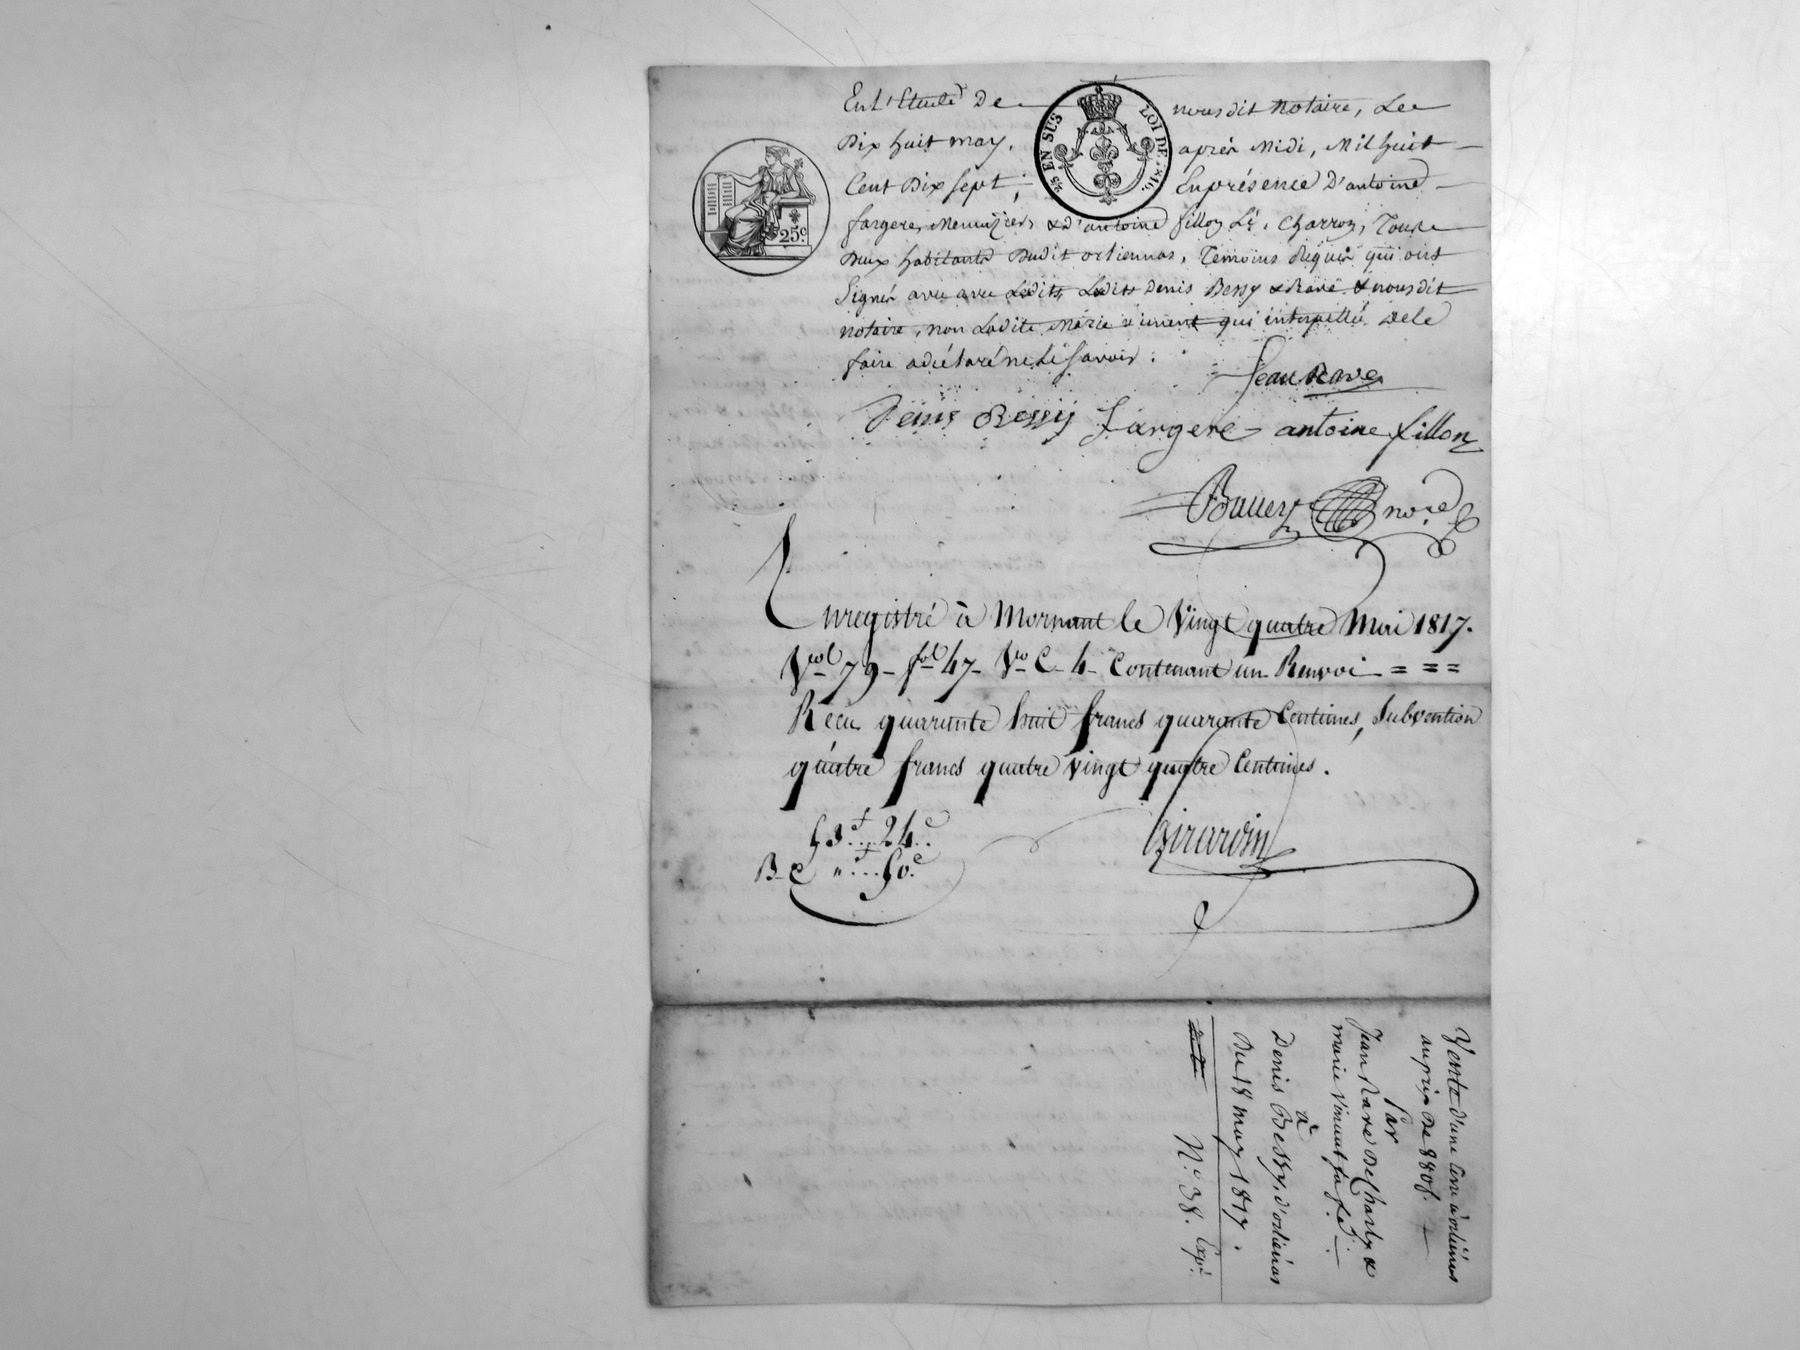 En l'Etude De nous dit Notaire, Le
Dix huit may, après Midi, Mil huit
Cent Dix Sept; En présence D'antoine
fargere, Menuizier, & d'antoine fillon Charron, Tous
Deux habitants Dudit orliennas, Témoins Requis qui ont
Signés avec Denis Bessy & Rave & nous dit
notaire, non Ladite Marie Vincent qui interpellée De le
faire a déclaré ne le Savoir.
Jean Rave
Denis Bessy fargere antoine fillon
nore
25c
EN SUS LOI DE 1816
Enregistré à Mornant le Vingt quatre Mai 1817.
Vol 79 - fol 47 - Vo C. 4 - Contenant un Renvoi = = =
Recu quarante huit francs quarante Centimes, Subvention
quatre francs quatre vingt quatre Centimes.
53f..24c
50c
Girardin
Vente d'une terre à orliénas
au prix De 880f.
Par
Jean Rave De Charly &
marie Vincent sa fe
à
Denis Bessy, d'orliénas
Du 18 may 1817.
No 38. Expn